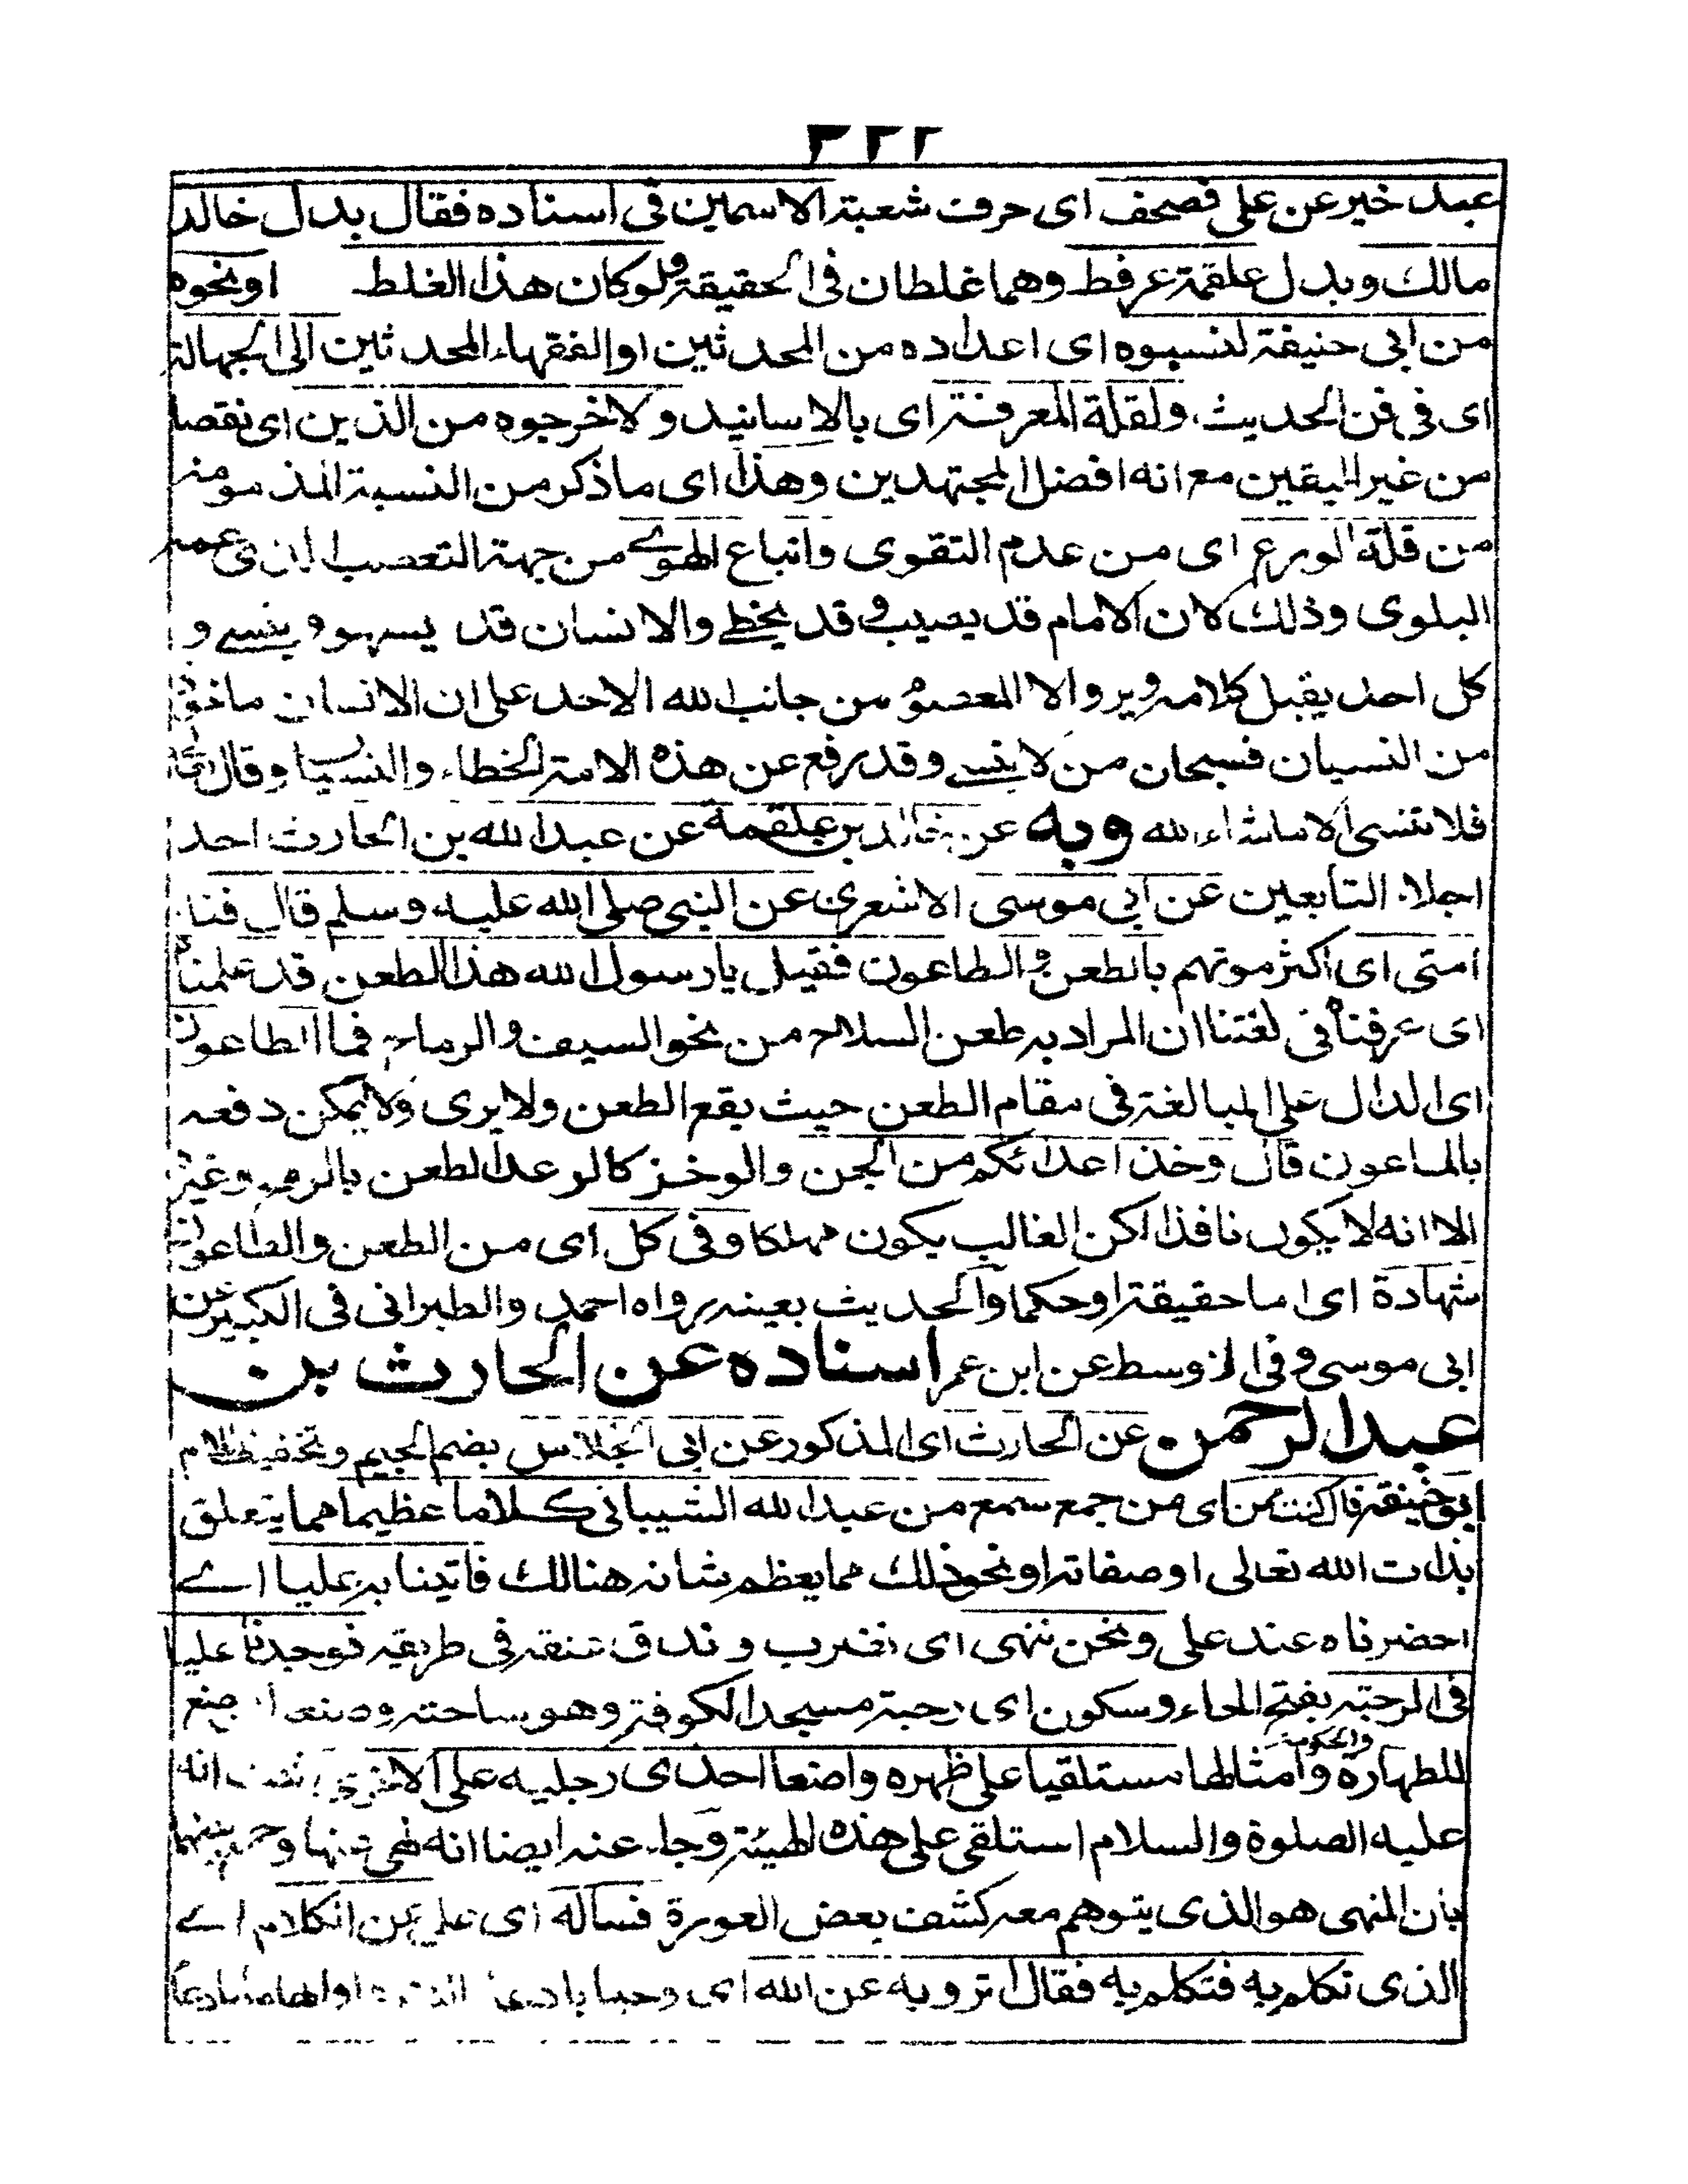 ٣٢٢
عبد خير عن على فصحف اى حرف شعبة الاسمين فى اسناده فقال بدل خالد
مالك وبدل علقمة عرفط وهما غلطان فى الحقيقة ولو كان هذا الغلط او نحوه
من ابى حنيفة لنسبوه اى اعداده من المحدثين او الفقهاء المحدثين الى الجهالة
اى فى فن الحديث ولقلة المعرفة اى بالاسانيد ولاخرجوه من الذين اى نقصا
من غير اليقين مع انه افضل المجتهدين وهذا اى ما ذكر من النسبة المذمومة
من قلة الورع اى من عدم التقوى واتباع الهوى من جهة التعصب
البلوى وذلك لان الامام قد يصيب وقد يخطى والانسان قد يسهو وينسى و
كل احد يقبل كلامه ويرد الا المعصوم من جانب الله الاحد على ان الانسان ماخوذ
من النسيان فسبحان من لا ينسى وقد رفع عن هذه الامة الخطاء والنسيا وقال تعالى
فلا تنسى الا ماشاء الله وبه عن خالد بن علقمة عن عبد الله بن الحارث احد
اجلاء التابعين عن ابى موسى الاشعرى عن النبى صلى الله عليه وسلم قال فناء
امتى اى اكثر موتهم بالطعن والطاعون فقيل يا رسول الله هذا الطعن قد علمناه
اى عرفناه فى لغتنا ان المراد به طعن السلاح من نحو السيف والرماح فما الطاعون
اى الدال على المبالغة فى مقام الطعن حيث يقع الطعن ولا يرى ولا يمكن دفعه
بالماعون قال وخذ اعدائكم من الجن والوخز كالوعد الطعن بالرمح وغيره
الا انه لا يكون نافذا لكن الغالب يكون مهلكا وفى كل اى من الطعن والطاعون
شهادة اى اما حقيقة او حكما والحديث بعينه رواه احمد والطبرانى فى الكبير عن
ابى موسى وفى الاوسط عن ابن عمر اسناده عن الحارث بن
عبد الرحمن عن الحارث اى المذكور عن ابى الجلاس بضم الجيم وتخفيف اللام
ابو حنيفة قال كنت ممن اى من جمع سمع من عبد الله الشيبانى كلاما عظيما مما يتعلق
بذات الله تعالى او صفاته او نحو ذلك مما يعظم شانه هنالك فاتينا به عليا اى
احضرناه عند على ونحن ننهى اى نضرب وندق عنقه فى طريقه فوجدنا عليا
فى الرحبة بفتح الحاء وسكون اى رحبة مسجد الكوفة وهو ساحته
للطهارة والحكومة وامثالها مستلقيا على ظهره واضعا احدى رجليه على الاخرى انه
عليه الصلوة والسلام استلقى على هذه الهيئة وجاء عنه ايضا انه نهى عنها وجمع بينهما
بان المنهى هو الذى يتوهم معه كشف بعض العورة فساله اى على عن الكلام اى
الذى تكلم به فتكلم به فقال ترويه عن الله اى وحيا